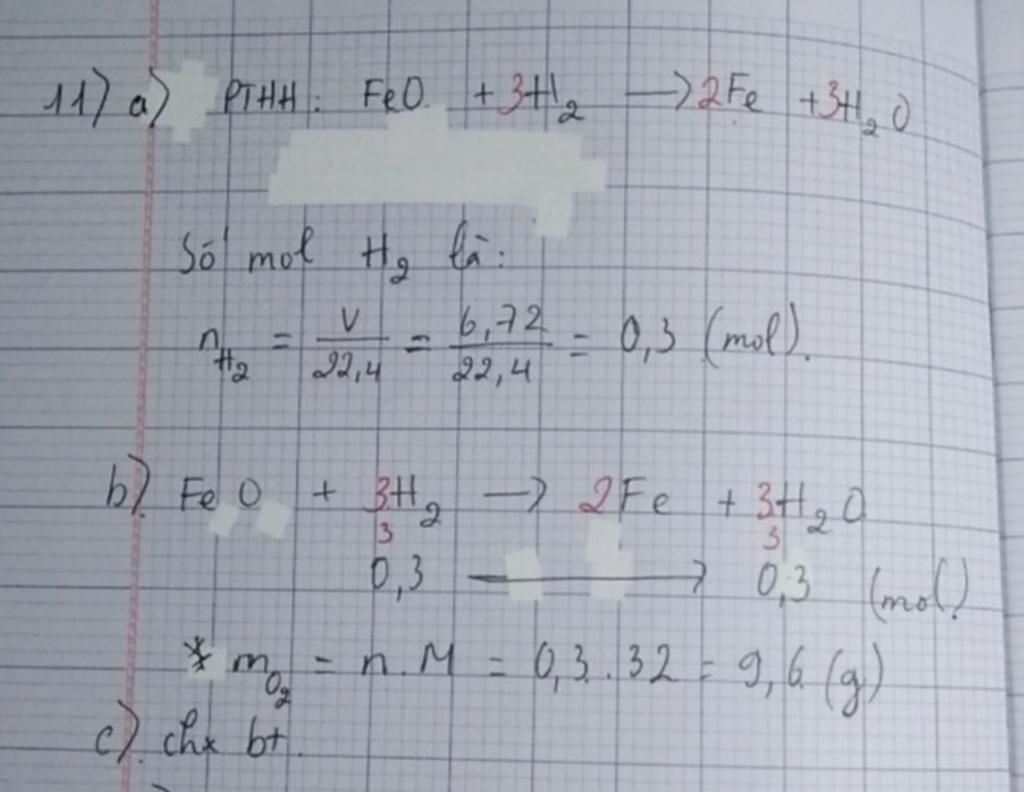 11) a) PTHH: FeO + 3H₂ → 2Fe + 3H₂O
Số mol H₂ là:
nH₂ = V/22,4 = 6,72/22,4 = 0,3 (mol).
b). FeO + 3H₂ → 2Fe + 3H₂O
3 3
0,3 → 0,3 (mol)
* mO₂ = n.M = 0,3.32 = 9,6 (g)
c). chx bt.